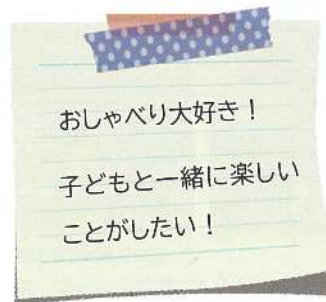 おしゃべり大好き！
子どもと一緒に楽しい
ことがしたい！